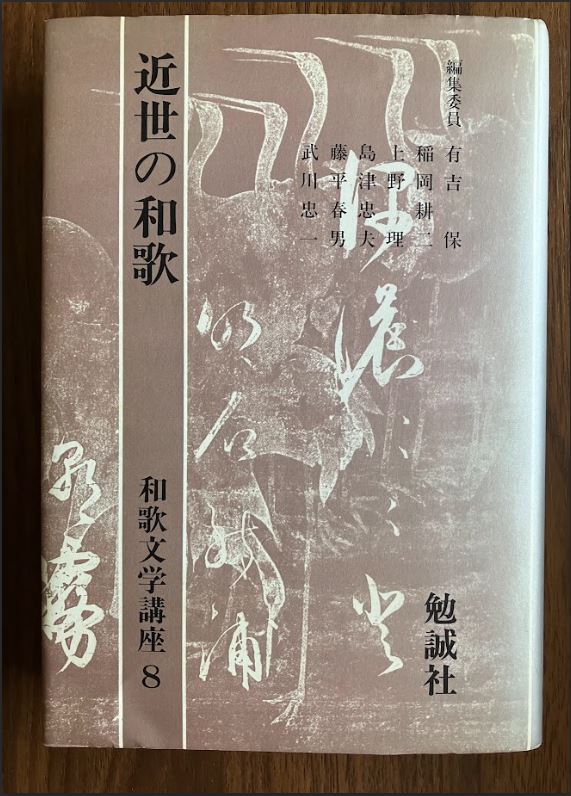 編集委員
有吉 保
稲岡耕二
上野 理
島津忠夫
藤平春男
武川忠一
勉誠社
明石能浦
朝霧
近世の和歌
和歌文学講座 8